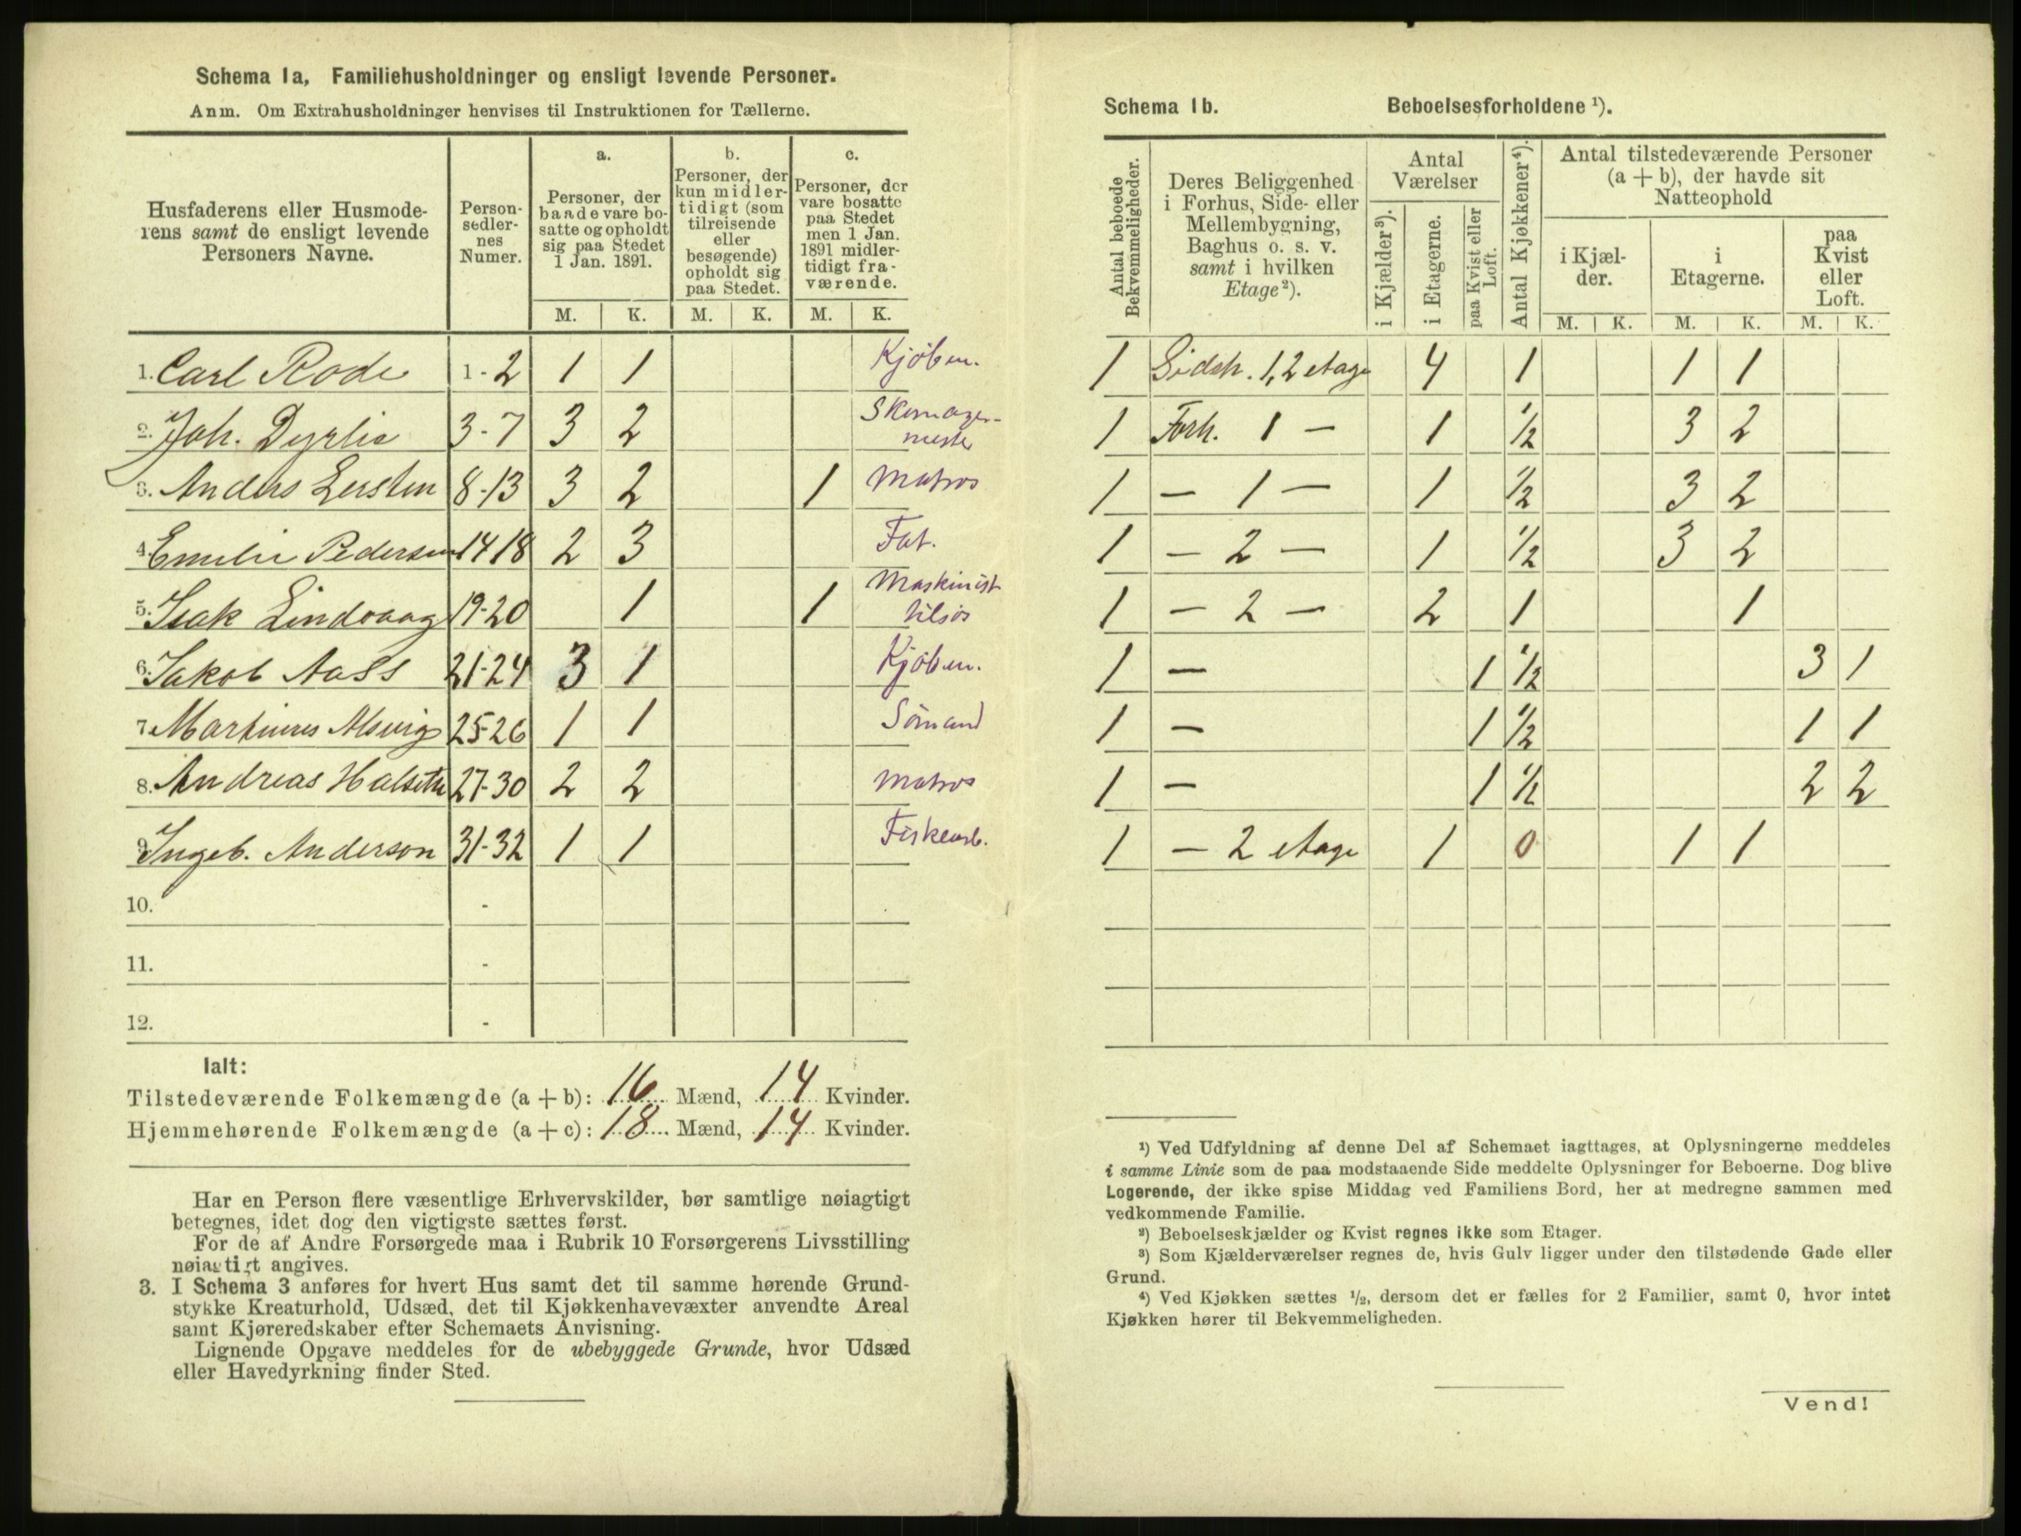 Schema 1a, Familiehusholdninger og ensligt levende Personer.
Anm. Om Extrahusholdninger henvises til Instruktionen for Tællerne.
Husfaderens eller Husmode-
rens samt de ensligt levende
Personers Navne.
Person-
sedler-
nes
Numer.
a.
Personer, der
baade vare bo-
satte og opholdt
sig paa Stedet
1 Jan. 1891.
b.
Personer, der
kun midler-
tidigt (som
tilreisende
eller
besøgende)
opholdt sig
paa Stedet.
c.
Personer, der
vare bosatte
paa Stedet
men 1 Jan.
1891 midler-
tidigt fra-
værende.
M. K. M. K. M. K.
1. Carl Rode 1-2 1 1 Kjöbm.
2. Joh. Dyrlie 3-7 3 2 Skomager-
mester
3. Anders Lersten 8-13 3 2 1 Matros
4. Emelie Pedersen 14 18 2 3 Fat.
5. Isak Lindvaag 19-20 1 1 Maskinist
tilsös
6. Jakob Aass 21-24 3 1 Kjöbm.
7. Martinus Alsvig 25-26 1 1 Sömand
8. Andreas Halseth 27-30 2 2 Matros
9. Ingeb. Anderson 31-32 1 1 Fiskearb.
10. -
11. -
12. -
Ialt:
Tilstedeværende Folkemængde (a + b): 16 Mænd, 14 Kvinder.
Hjemmehørende Folkemængde (a + c): 18 Mænd, 14 Kvinder.
Har en Person flere væsentlige Erhvervskilder, bør samtlige nøiagtigt
betegnes, idet dog den vigtigste sættes først.
For de af Andre Forsørgede maa i Rubrik 10 Forsørgerens Livsstilling
nøiagtigt angives.
3. I Schema 3 anføres for hvert Hus samt det til samme hørende Grund-
stykke Kreaturhold, Udsæd, det til Kjøkkenhavevæxter anvendte Areal
samt Kjøreredskaber efter Schemaets Anvisning.
Lignende Opgave meddeles for de ubebyggede Grunde, hvor Udsæd
eller Havedyrkning finder Sted.
Schema 1b. Beboelsesforholdene ¹).
Antal beboede
Bekvemmeligheder.
Deres Beliggenhed
i Forhus, Side- eller
Mellembygning,
Baghus o. s. v.
samt i hvilken
Etage²).
Antal
Værelser
i Kjælder³).
i Etagerne.
paa Kvist eller
Loft.
Antal Kjøkkener⁴).
Antal tilstedeværende Personer
(a + b), der havde sit
Natteophold
i Kjæl-
der.
i
Etagerne.
paa
Kvist
eller
Loft.
M. K. M. K. M. K.
1 Sidsh. 1, 2 etage 4 1 1 1
1 Forh. 1 — 1 ½ 3 2
1 — 1 — 1 ½ 3 2
1 — 2 — 1 ½ 3 2
1 — 2 — 2 1 1
1 — 1 ½ 3 1
1 — 1 ½ 1 1
1 — 1 ½ 2 2
1 — 2 etage 1 0 1 1
¹) Ved Udfyldning af denne Del af Schemaet iagttages, at Oplysningerne meddeles
i samme Linie som de paa modstaaende Side meddelte Oplysninger for Beboerne. Dog blive
Logerende, der ikke spise Middag ved Familiens Bord, her at medregne sammen med
vedkommende Familie.
²) Beboelseskjælder og Kvist regnes ikke som Etager.
³) Som Kjælderværelser regnes de, hvis Gulv ligger under den tilstødende Gade eller
Grund.
⁴) Ved Kjøkken sættes ½, dersom det er fælles for 2 Familier, samt 0, hvor intet
Kjøkken hører til Bekvemmeligheden.
Vend!